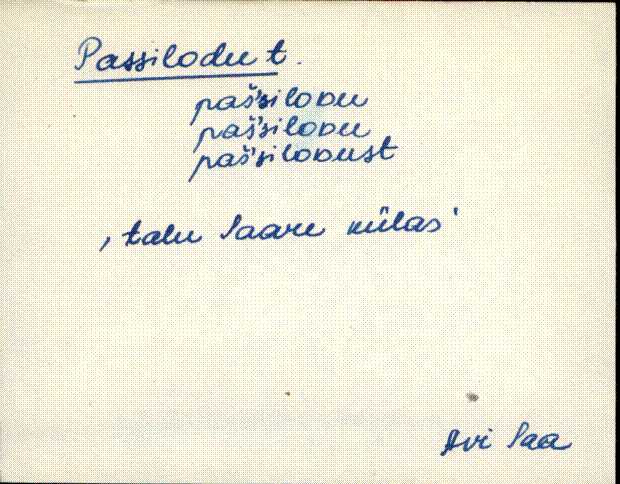 Passilodu t.
paš'silodu
paš'silodu
paš'silodust
‚talu Saare külas'
Avi Saa